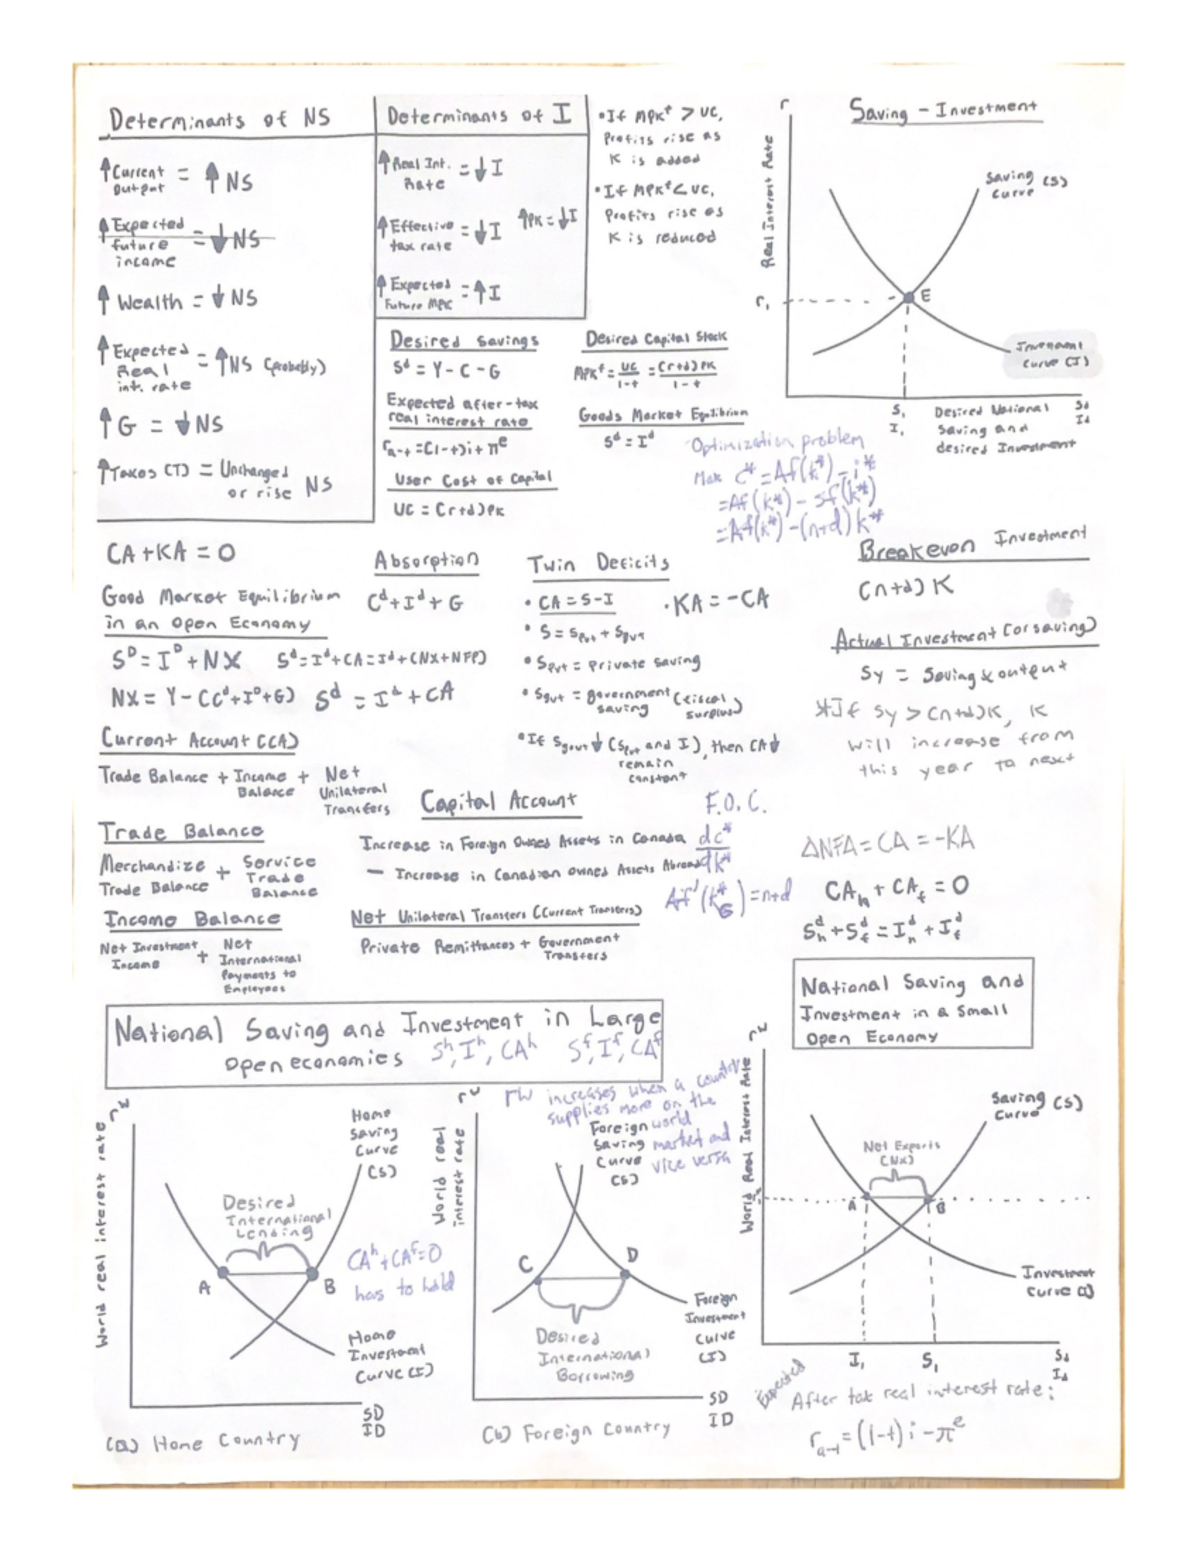 Determinants of NS
↑ Current output = ↑ NS
↑ Expected future income = ↓ NS
↑ Wealth = ↓ NS
↑ Expected Real int. rate = ↑ NS (probably)
↑ G = ↓ NS
↑ Taxes (T) = Unchanged or rise NS
Determinants of I
↑ Real Int. Rate = ↓ I
↑ Effective tax rate = ↓ I
↑PK = ↓I
↑ Expected Future MPK = ↑ I
• If MPKᶠ > UC,
Profits rise as
K is added
• If MPKᶠ < UC,
Profits rise as
K is reduced
Desired Savings
Sᵈ = Y - C - G
Expected after-tax
real interest rate
r a-t = (1-t)i + πᵉ
User Cost of Capital
UC = (r+d)PK
Desired Capital Stock
MPKᶠ = UC/1-t = (r+d)PK/1-t
Goods Market Equilibrium
Sᵈ = Iᵈ
Optimization problem
Max C* = Af(k*) - i*
= Af(k*) - sf(k*)
= Af(k*) - (n+d) k*
Saving - Investment
r
Real Interest Rate
Saving (S)
Curve
r₁
E
Investment
Curve (I)
S₁
I₁
Desired National
Saving and
desired Investment
Sd
Id
CA + KA = 0
Good Market Equilibrium
in an Open Economy
Sᴰ = Iᴰ + NX
Sᵈ = Iᵈ + CA = Iᵈ + (NX + NFP)
NX = Y - (Cᵈ + Iᴰ + G)
Sᵈ = Iᵈ + CA
Current Account (CA)
Trade Balance + Income Balance + Net Unilateral Transfers
Trade Balance
Merchandize Trade Balance + Service Trade Balance
Income Balance
Net Investment Income + Net International Payments to Employees
Absorption
Cᵈ + Iᵈ + G
Twin Deficits
• CA = S - I
• KA = -CA
• S = Spvt + Sgvt
• Spvt = Private saving
• Sgvt = government saving (fiscal surplus)
• If Sgovt ↓ (Spvt and I), then CA↓
remain
constant
Capital Account
Increase in Foreign Owned Assets in Canada
- Increase in Canadian Owned Assets Abroad
Net Unilateral Transfers (Current Transfers)
Private Remittances + Government Transfers
F.O.C.
dc*
dk*
Af'(k*G) = n+d
Breakeven Investment
(n+d) K
Actual Investment (or saving)
Sy = Saving x output
*If Sy > (n+d)K, K
will increase from
this year to next
ΔNFA = CA = -KA
CAh + CAf = 0
Sᵈh + Sᵈf = Iᵈh + Iᵈf
National Saving and Investment in Large
Open economies
Sʰ, Iʰ, CAʰ Sᶠ, Iᶠ, CAᶠ
rʷ increases when a country
supplies more on the
world
market and
vice versa
rʷ
World real interest rate
Home
Saving
Curve
(S)
Desired
International
Lending
A
B
CAʰ + CAᶠ = 0
has to hold
Home
Investment
Curve (I)
SD
ID
(a) Home Country
rʷ
World real
interest rate
Foreign
Saving
Curve
(S)
C
D
Desired
International
Borrowing
Foreign
Investment
Curve
(I)
SD
ID
(b) Foreign Country
National Saving and
Investment in a Small
Open Economy
rʷ
World Real Interest Rate
Saving (S)
Curve
Net Exports
(NX)
A
B
Investment
Curve (I)
I₁
S₁
Sd
Id
Expected
After tax real interest rate:
r a-t = (1-t) i - πᵉ